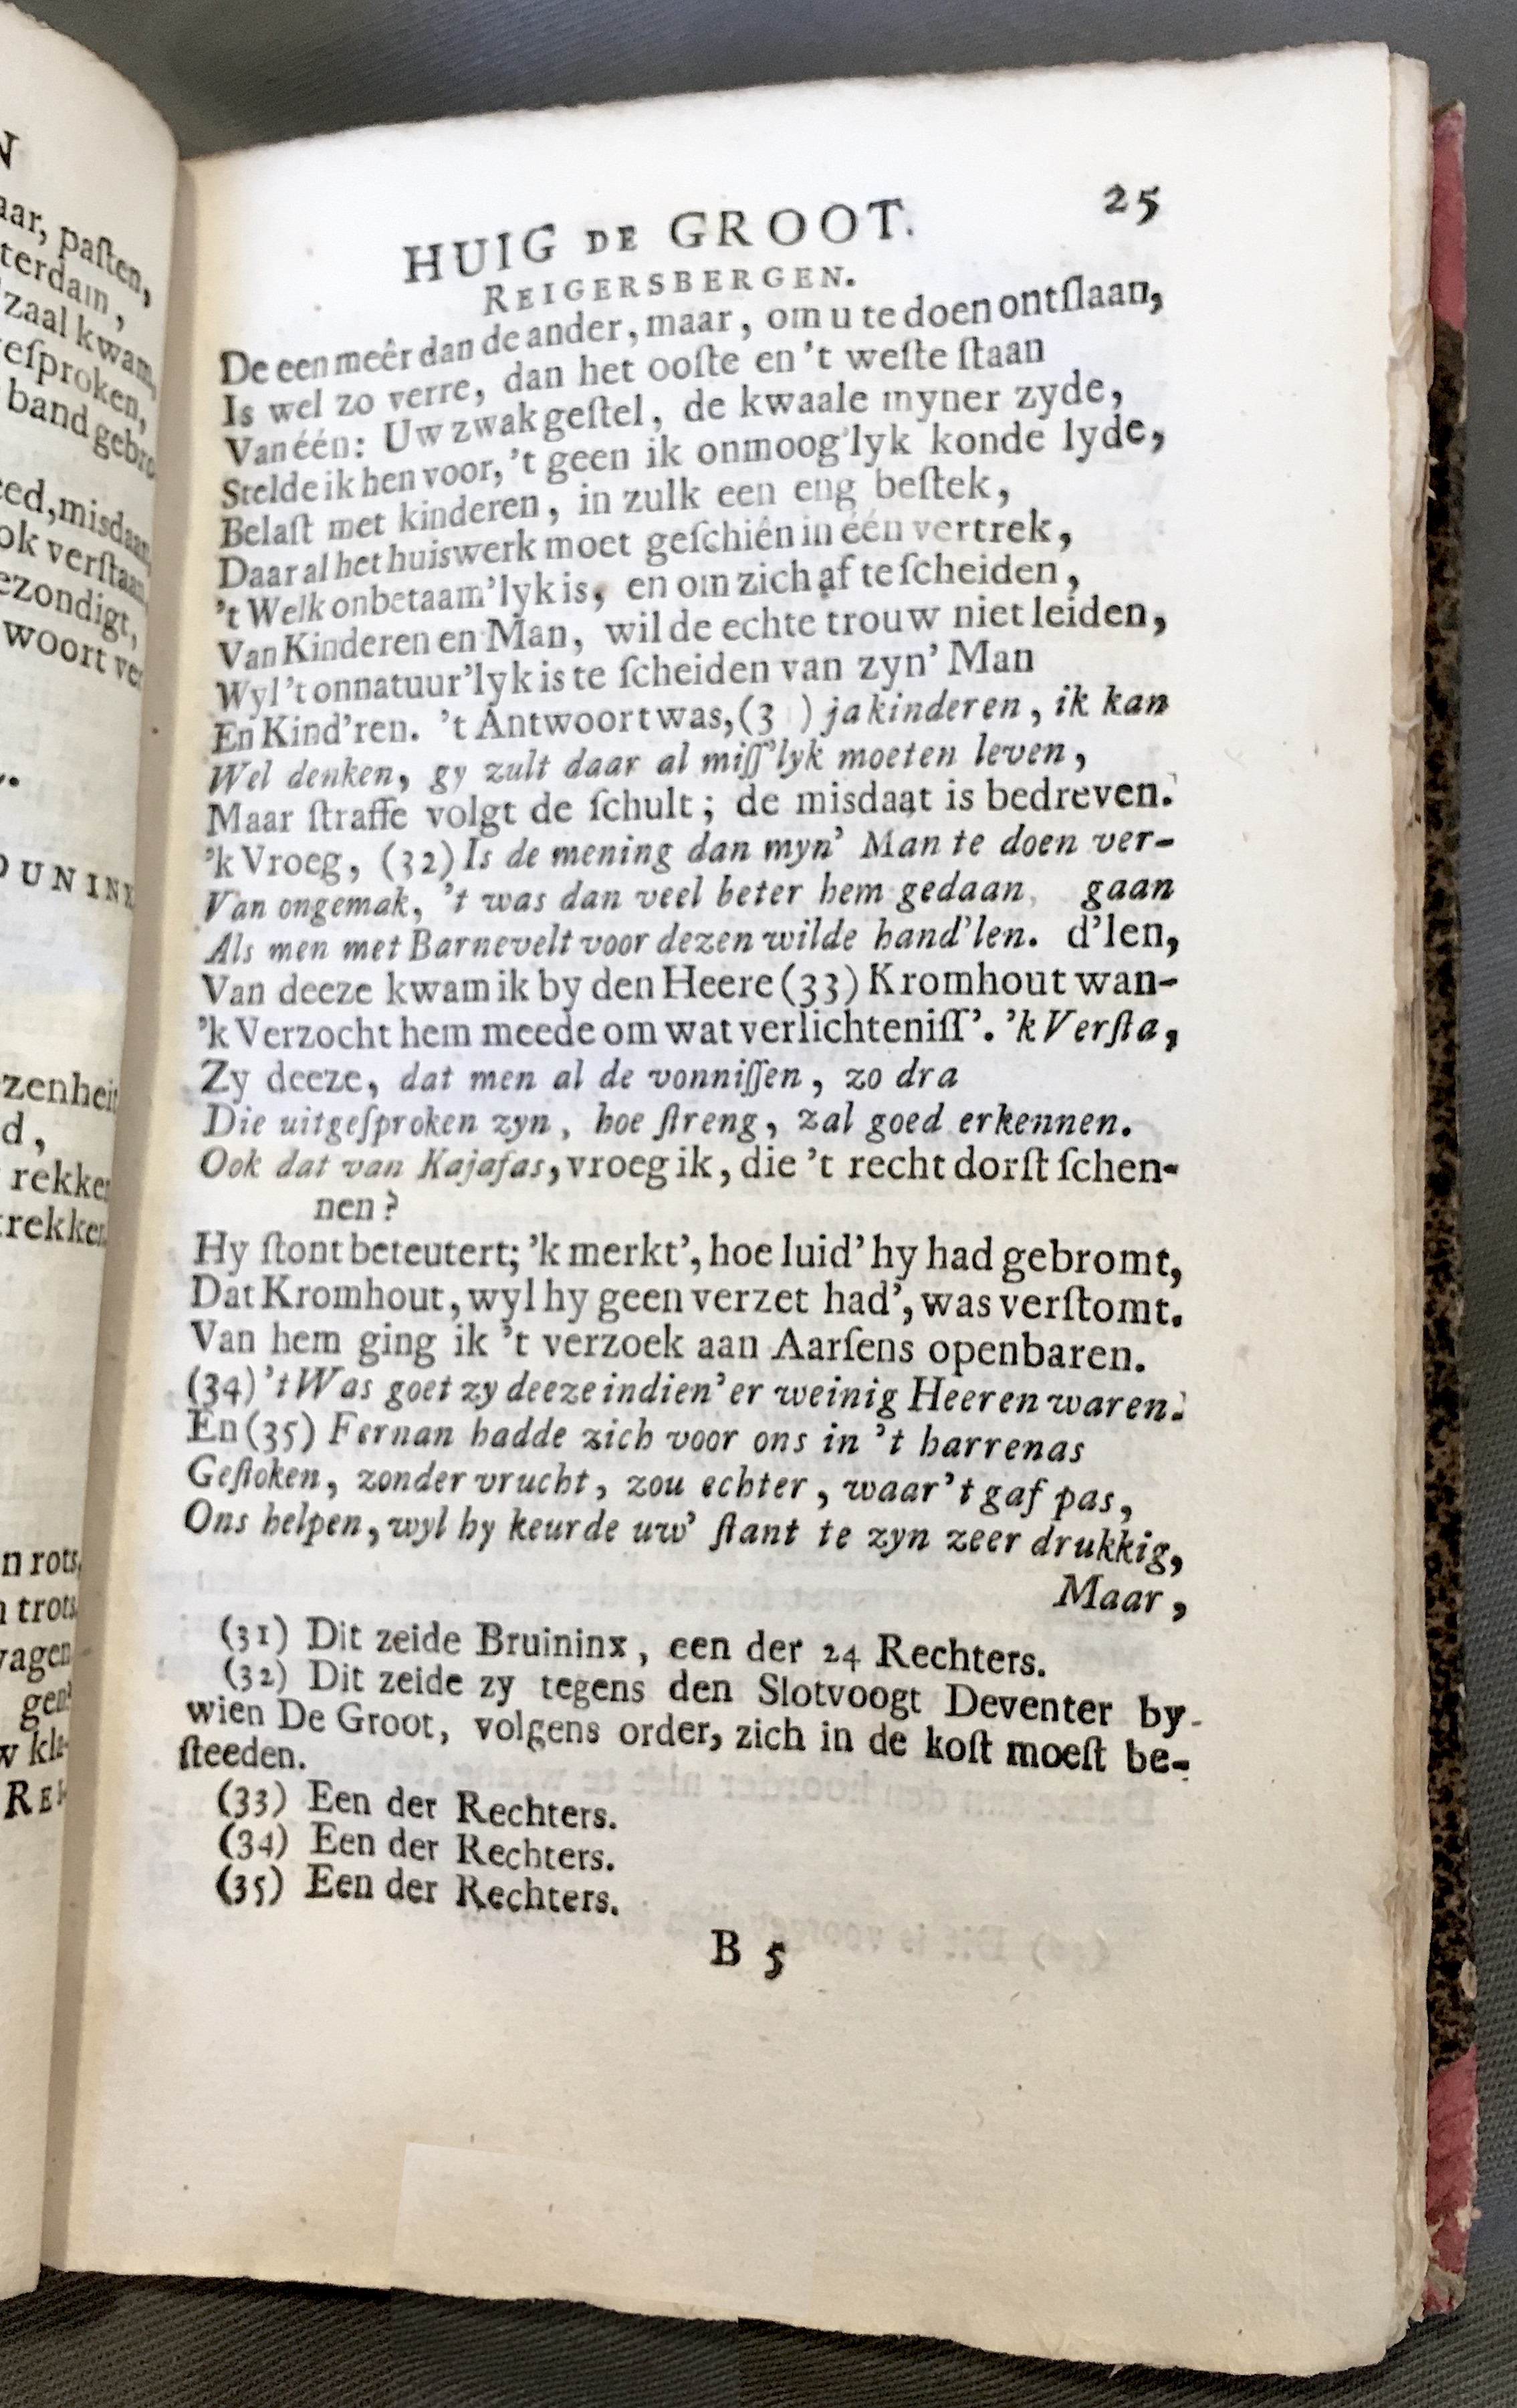 HUIG DE GROOT. 25
REIGERSBERGEN.
De een meêr dan de ander, maar, om u te doen ontſlaan,
Is wel zo verre, dan het ooſte en 't weſte ſtaan
Van één: Uw zwak geſtel, de kwaale myner zyde,
Stelde ik hen voor, 't geen ik onmoog'lyk konde lyde,
Belaſt met kinderen, in zulk een eng beſtek,
Daar al het huiswerk moet geſchiên in één vertrek,
't Welk onbetaam'lyk is, en om zich af te ſcheiden,
Van Kinderen en Man, wil de echte trouw niet leiden,
Wyl 't onnatuur'lyk is te ſcheiden van zyn' Man
En Kind'ren. 't Antwoort was, (3 ) ja kinderen, ik kan
Wel denken, gy zult daar al miſſ'lyk moeten leven,
Maar ſtraffe volgt de ſchult; de misdaat is bedreven.
'k Vroeg, (32) Is de mening dan myn' Man te doen ver-
Van ongemak, 't was dan veel beter hem gedaan, gaan
Als men met Barnevelt voor dezen wilde hand'len. d'len,
Van deeze kwam ik by den Heere (33) Kromhout wan-
'k Verzocht hem meede om wat verlichteniſſ'. 'k Verſta,
Zy deeze, dat men al de vonniſſen, zo dra
Die uitgeſproken zyn, hoe ſtreng, zal goed erkennen.
Ook dat van Kajafas, vroeg ik, die 't recht dorſt ſchen-
nen?
Hy ſtont beteutert; 'k merkt', hoe luid' hy had gebromt,
Dat Kromhout, wyl hy geen verzet had', was verſtomt.
Van hem ging ik 't verzoek aan Aarſens openbaren.
(34) 't Was goet zy deeze indien'er weinig Heeren waren.
En (35) Fernan hadde zich voor ons in 't harrenas
Geſtoken, zonder vrucht, zou echter, waar't gaf pas,
Ons helpen, wyl hy keurde uw' ſtant te zyn zeer drukkig,
Maar,
(31) Dit zeide Bruininx, een der 24 Rechters.
(32) Dit zeide zy tegens den Slotvoogt Deventer by-
wien De Groot, volgens order, zich in de koſt moeſt be-
ſteeden.
(33) Een der Rechters.
(34) Een der Rechters.
(35) Een der Rechters.
B 5